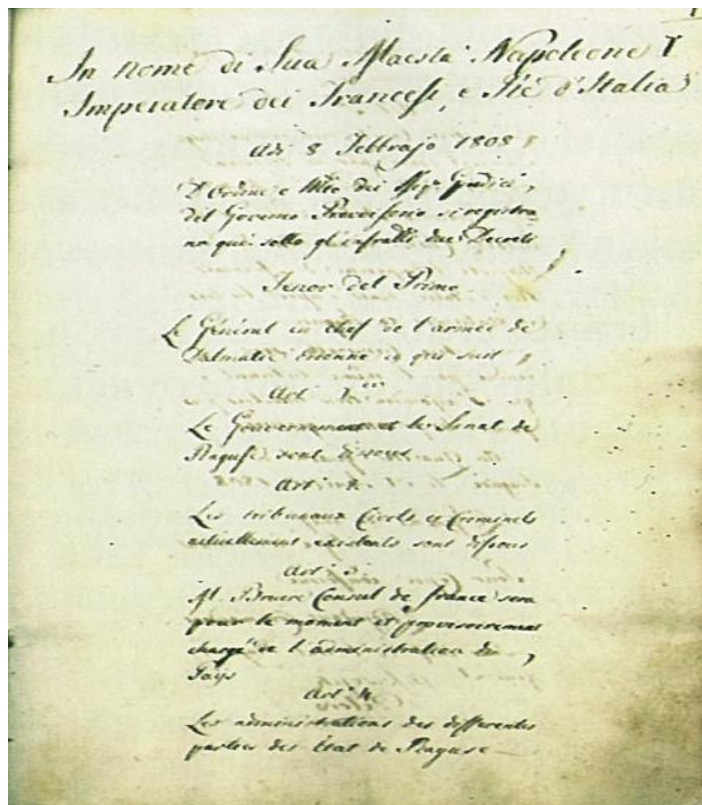 In nome di Sua Maestà Napoleone I
Imperatore dei Francesi, e Rè d'Italia
Adi 8 Febbrajo 1808
D'Ordine e dei Giudici,
del Governo Provisorio si registra
no qui sotto gl'infratti due Decreti
Tenor del Primo
Le Général en chef de l'armée de
Dalmatie ordonne ce qui suit
Art. 1er
Le Gouvernement et le Senat de
Raguse sont dissous
Art. 2.
Les tribunaux Civils et Criminels
actuellement existents sont dissous
Art. 3.
M. Bruere Consul de france sera
pour le moment et provisoirement
chargé de l'administration du
Pays
Art. 4.
Les administrations des differentes
parties des État de Raguse